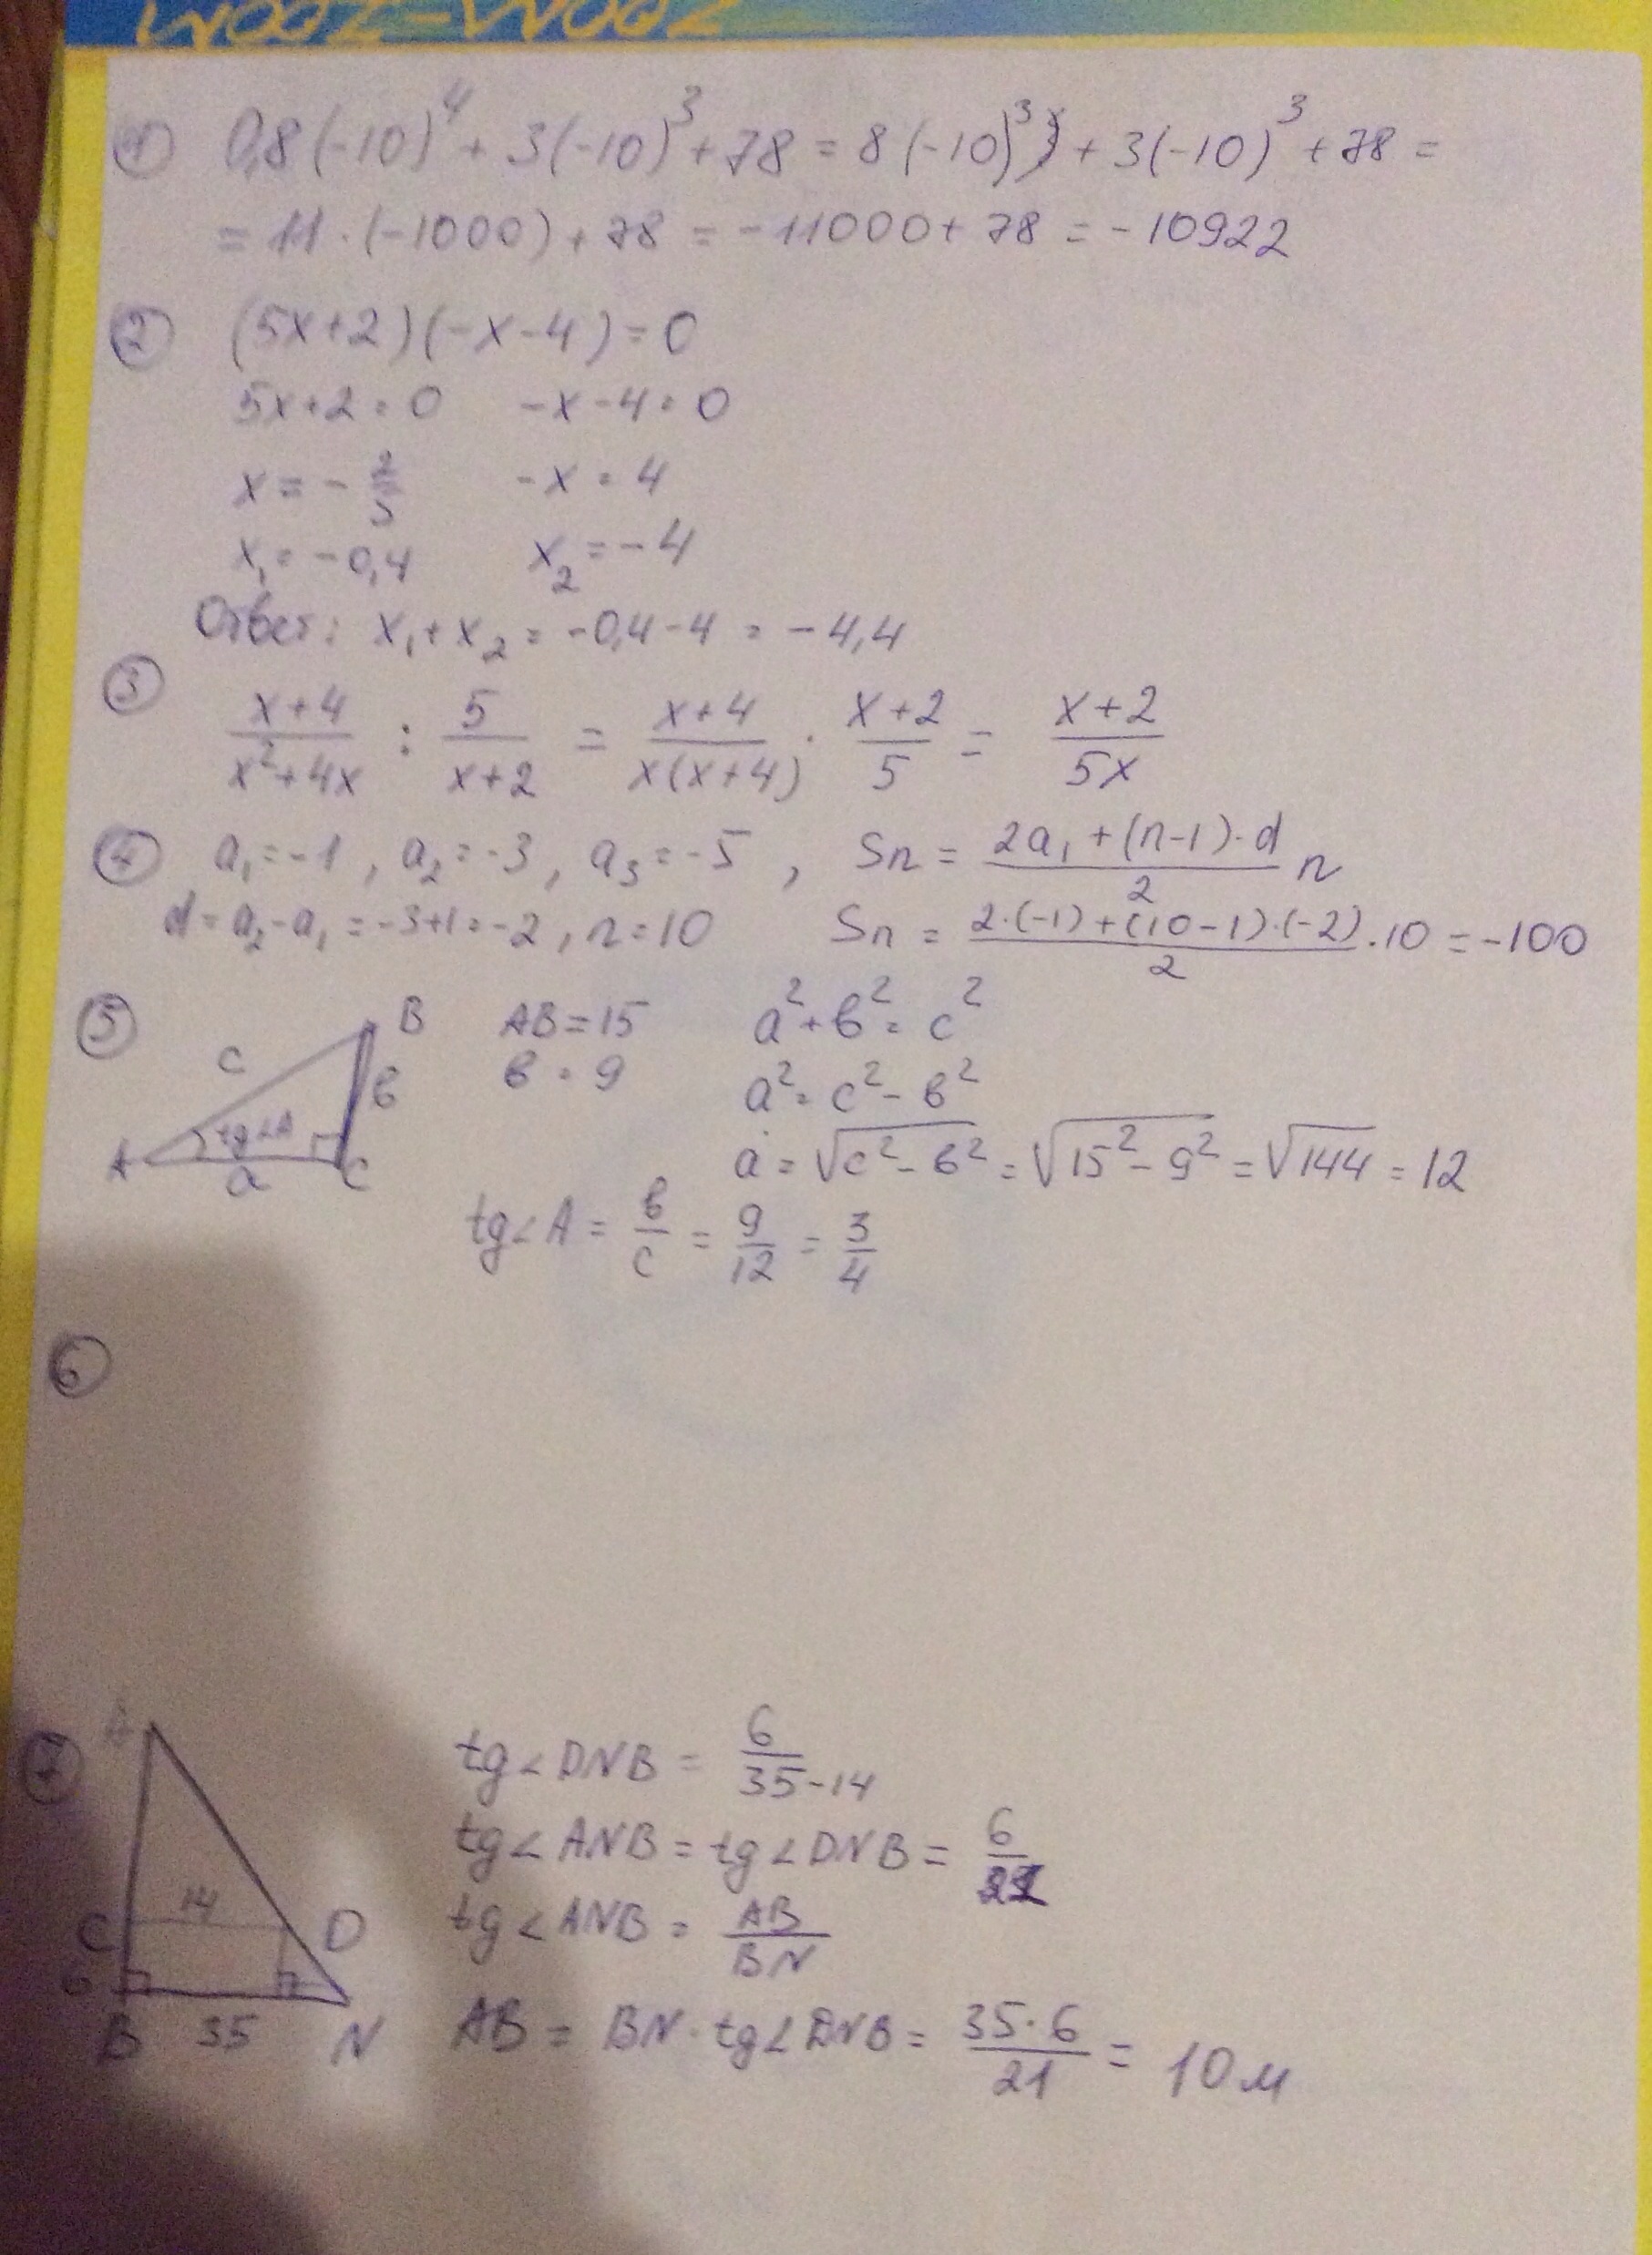 ZOOM-ZOOM
1 0,8(-10)^4 + 3(-10)^3 + 78 = 8(-10)^3) + 3(-10)^3 + 78 =
= 11 · (-1000) + 78 = -11000 + 78 = -10922
2 (5x+2)(-x-4)=0
5x+2=0 -x-4=0
x = -2/5 -x = 4
x₁ = -0,4 x₂ = -4
Ответ: x₁+x₂ = -0,4-4 = -4,4
3
(x+4)/(x²+4x) : 5/(x+2) = (x+4)/(x(x+4)) · (x+2)/5 = (x+2)/(5x)
4 a₁=-1, a₂=-3, a₃=-5, Sn = (2a₁+(n-1)·d)/2 n
d=a₂-a₁=-3+1=-2, n=10 Sn = (2·(-1)+(10-1)·(-2))/2 ·10 = -100
5 B AB=15 a²+в²=c²
c в в=9 a²=c²-в²
A tg∠A a C a=√(c²-в²)=√(15²-9²)=√144=12
tg∠A = в/c = 9/12 = 3/4
6
7 A tg∠DNB = 6/(35-14)
tg∠ANB = tg∠DNB = 6/21
14 C D tg∠ANB = AB/BN
6 B 35 N AB = BN·tg∠DNB = (35·6)/21 = 10м